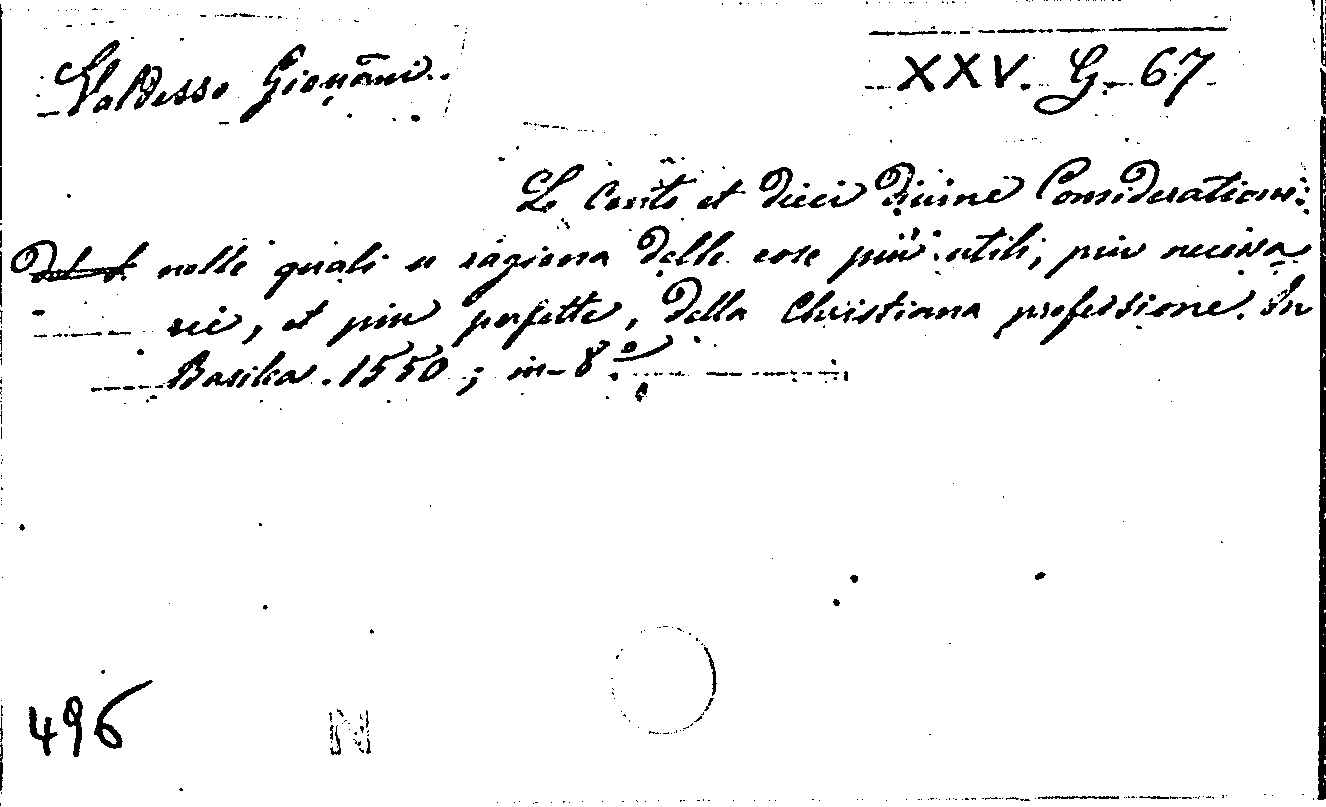 Valdesso Giovāni.
XXV. G. 67
Le Cento et dieci Divine Considerationi:
nelle quali si ragiona delle cose più utili, piu necessa
rie, et piu perfette, della Christiana professione. In
Basilea. 1550; in-8.º
496
N